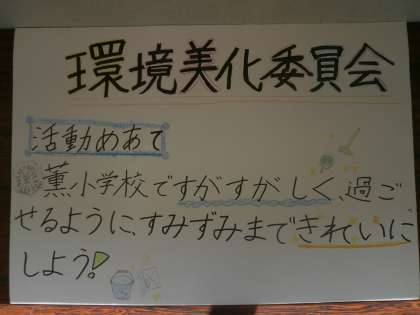 環境美化委員会
活動めあて
薫小学校ですがすがしく、過ご
せるように、すみずみまできれいに
しよう!